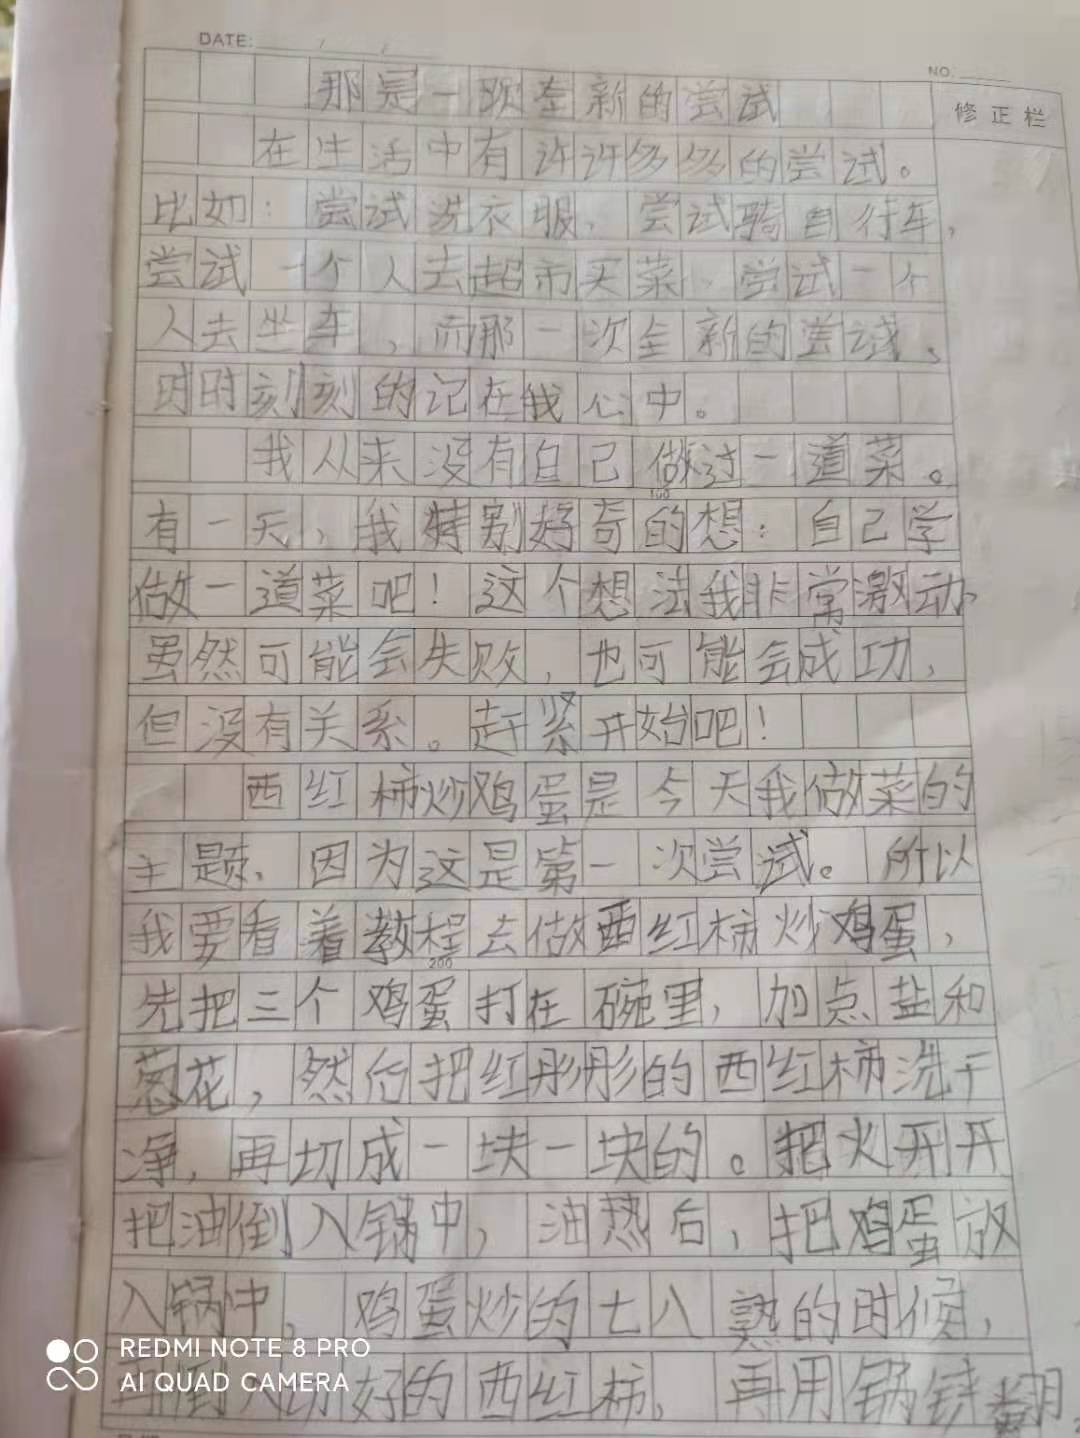 DATE:
NO.
修正栏
那是一次全新的尝试
在生活中有许许多多的尝试。
比如：尝试洗衣服，尝试骑自行车，
尝试一个人去超市买菜，尝试一个
人去坐车，而那一次全新的尝试，
时时刻刻的记在我心中。
我从来没有自己做过一道菜。
有一天，我特别好奇的想：自己学
做一道菜吧！这个想法我非常激动
虽然可能会失败，也可能会成功，
但没有关系。赶紧开始吧！
西红柿炒鸡蛋是今天我做菜的
主题，因为这是第一次尝试。所以
我要看着教程去做西红柿炒鸡蛋，
先把三个鸡蛋打在碗里，加点盐和
葱花，然后把红彤彤的西红柿洗干
净，再切成一块一块的。把火开开
把油倒入锅中，油热后，把鸡蛋放
入锅中，鸡蛋炒的七八熟的时候，
再倒入切好的西红柿，再用锅铲翻
100
200
REDMI NOTE 8 PRO
AI QUAD CAMERA